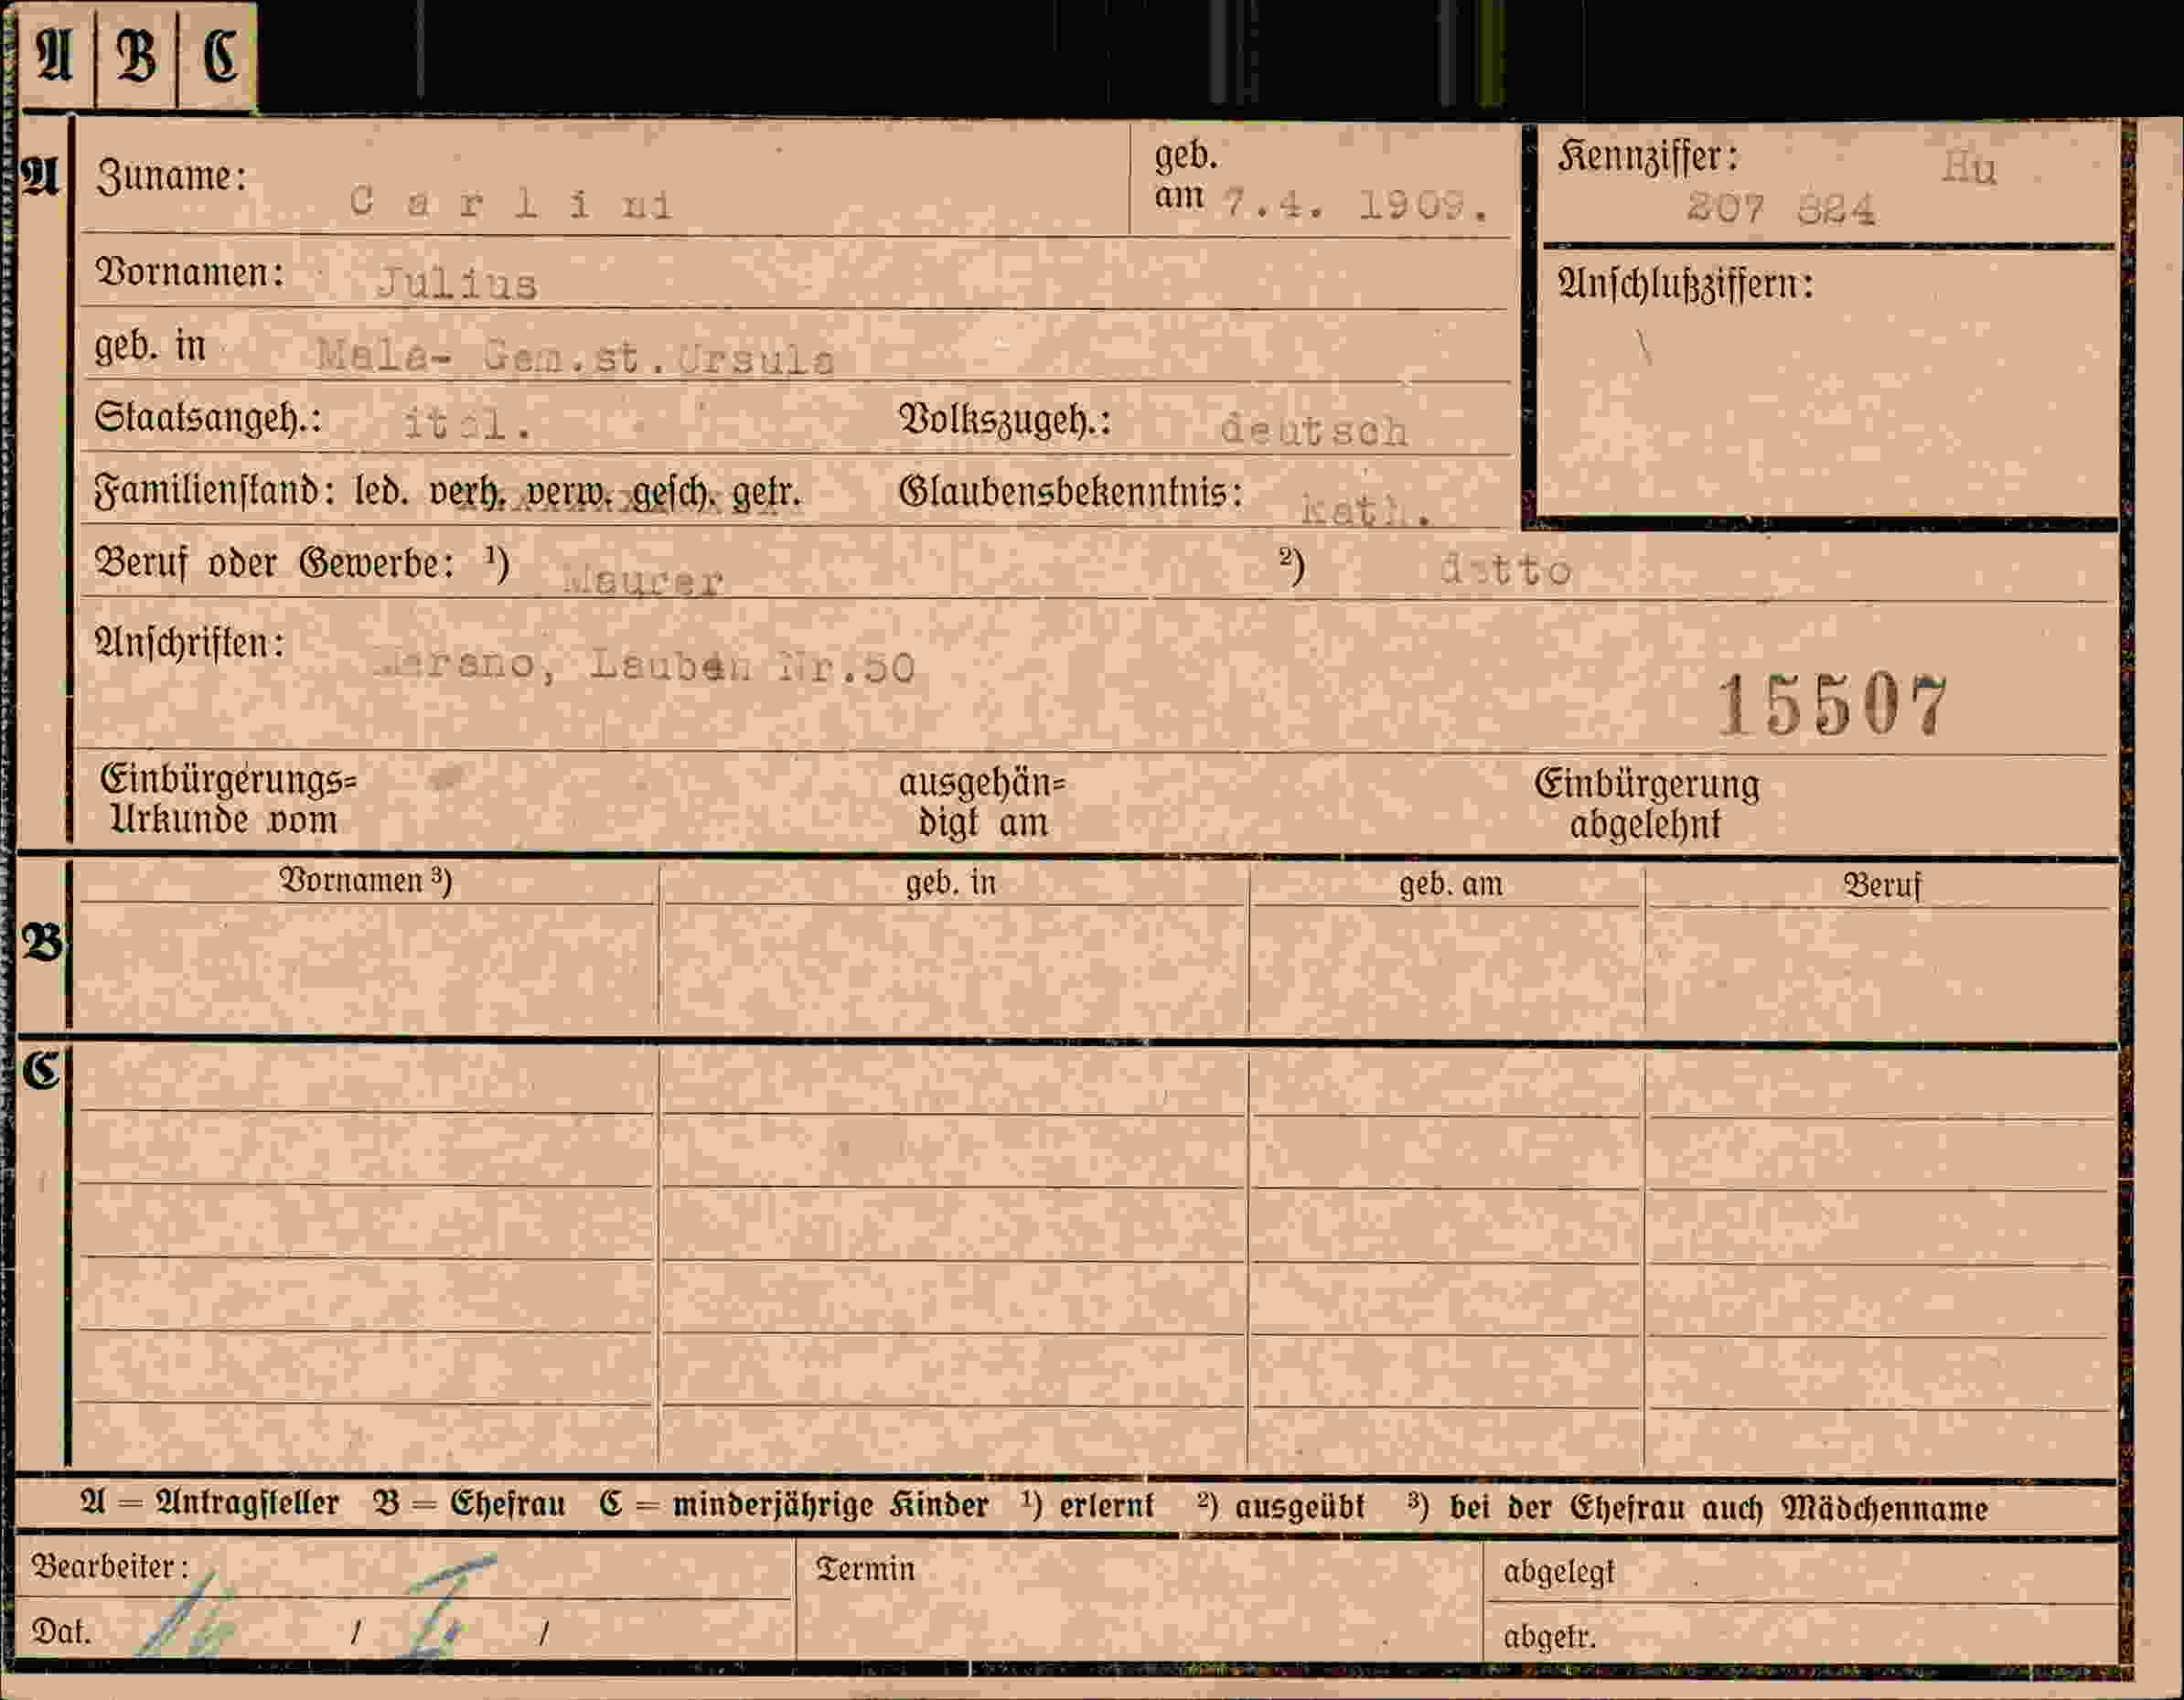 A B C
A Zuname: Carlini geb. am 7.4. 1909. Kennziffer: Hu
207 824
Vornamen: Julius Anschlußziffern:
geb. in Male- Gem.st.Ursula
Staatsangeh.: ital. Volkszugeh.: deutsch
Familienstand: led. verh. verw. gesch. getr. Glaubensbekenntnis: kath.
Beruf oder Gewerbe: ¹) Maurer ²) detto
Anschriften: Merano, Lauben Nr.50
15507
Einbürgerungs= ausgehän= Einbürgerung
Urkunde vom digt am abgelehnt
Vornamen ³) geb. in geb. am Beruf
B
C
A = Antragsteller B = Ehefrau C = minderjährige Kinder ¹) erlernt ²) ausgeübt ³) bei der Ehefrau auch Mädchenname
Bearbeiter: Termin abgelegt
Dat. / / abgetr.